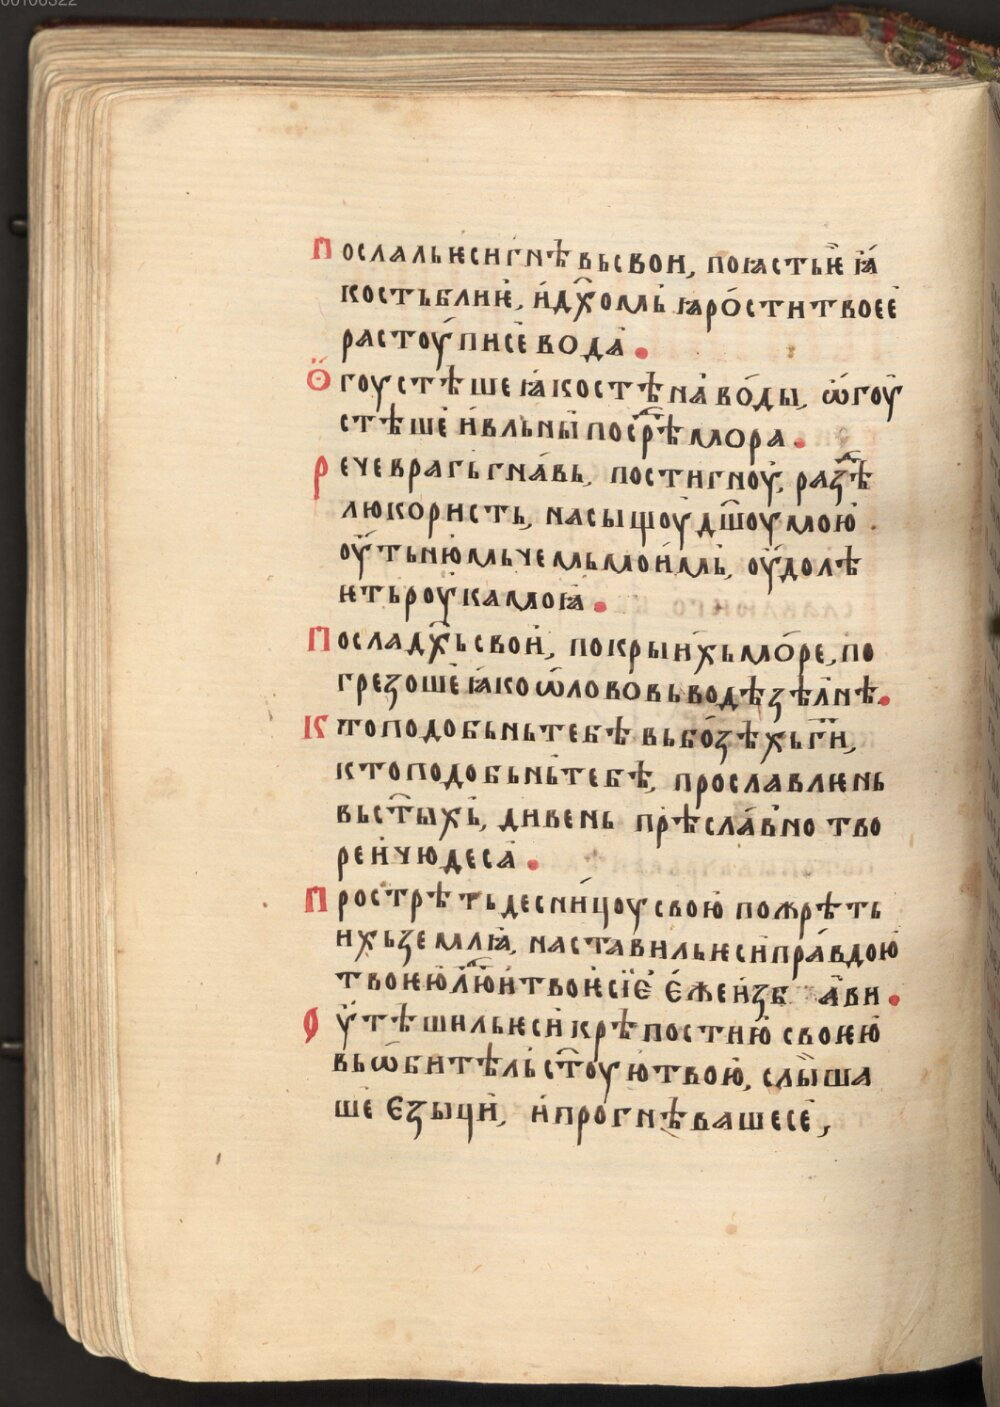 Послалъ ѥси гнѣвь свои, поꙗсть ѥ ꙗ҆́
ко стъблиѥ, и҆ дх҃омь ꙗро́сти твоеѥ
растоу́писе вода
Ѻ҆гоустѣше ꙗ҆ко стѣна во́ды, ѡ҆гоу
стѣше и҆ вльны посрⷣѣ мора
Рече врагь гна́вь, постигноу, разⷣѣ
лю користь, насыщоу дш҃оу мою
оу҆тьню мьчемь моимь, оу҆долѣ
ѥть роука моꙗ
Посла дх҃ь свои, покры ихь мо́ре, по
грезоше ꙗ҆ко ѡ҆лово вь водѣ зѣлнѣ
Кто подобьнь тебѣ вь бо́зѣхь гⷭ҇и,
кто подобьнь тебѣ, прославлѥнь
вь ст҃ыхь, дивень прѣсла́вно тво
реи чюдеса
Прострѣть десни́цоу свою пожрѣть
ихь землꙗ, наставиль ѥси пра́вдою
твоѥю лю́ⷣи твоѥ сїе є҆же и҆зб ави
Оу҆тѣшиль ѥси крѣпостию своѥю
вь ѡ҆битѣль ст҃оую твою, слы́ша
ше ѥзыци, и҆ прогнѣвашесе,